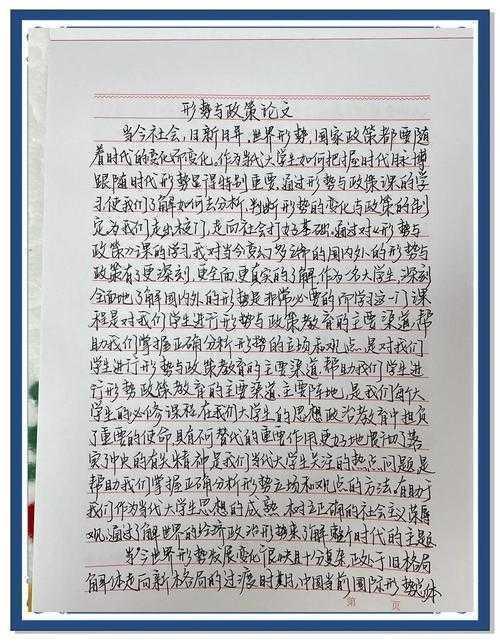 形势与政策论文
当今社会,日新月异,世界形势,国家政策都要随
着时代的变化而变化,作为当代大学生如何把握时代脉搏
跟随时代形势显得特别重要,通过形势与政策课的学
习,使我们了解如何去分析,判断形势的变化与政策的制
定,为我们走出校门,走向社会打好基础,通过对《形势与
政策》课的学习,我对当今变幻多端的国内外的形势与
政策有了更深刻,更全面,更真实的了解,作为一名大学生,深刻
全面地了解国内外的形势是非常必要的,所学习这一门课
程是对我们学生进行形势与政策教育的主要渠道,帮
助我们掌握正确分析形势的立场和观点,是对我们
学生进行形势与政策教育的主要渠道,帮助我们学生进
行形势政策教育的主要渠道,主要阵地,是我们每个大
学生的必修课程,在我们大学生的思想政治教育中担负
了重要的使命,具有不可替代的重要作用,更好地贯彻了落
实
是我们当代大学生关注的热点,问题,是
帮助我们掌握正确分析形势立场和观点的方法,有助于
我们作为当代大学生思想的成熟,树立正确的社会主义荣辱
观,通过了解世界的经济政治形势来了解整个时代的主题
当今世界形势发展变化很快且十分复杂,正处于旧格局
解体走向新格局的过度时期,中国当前国际形势总体
第 页